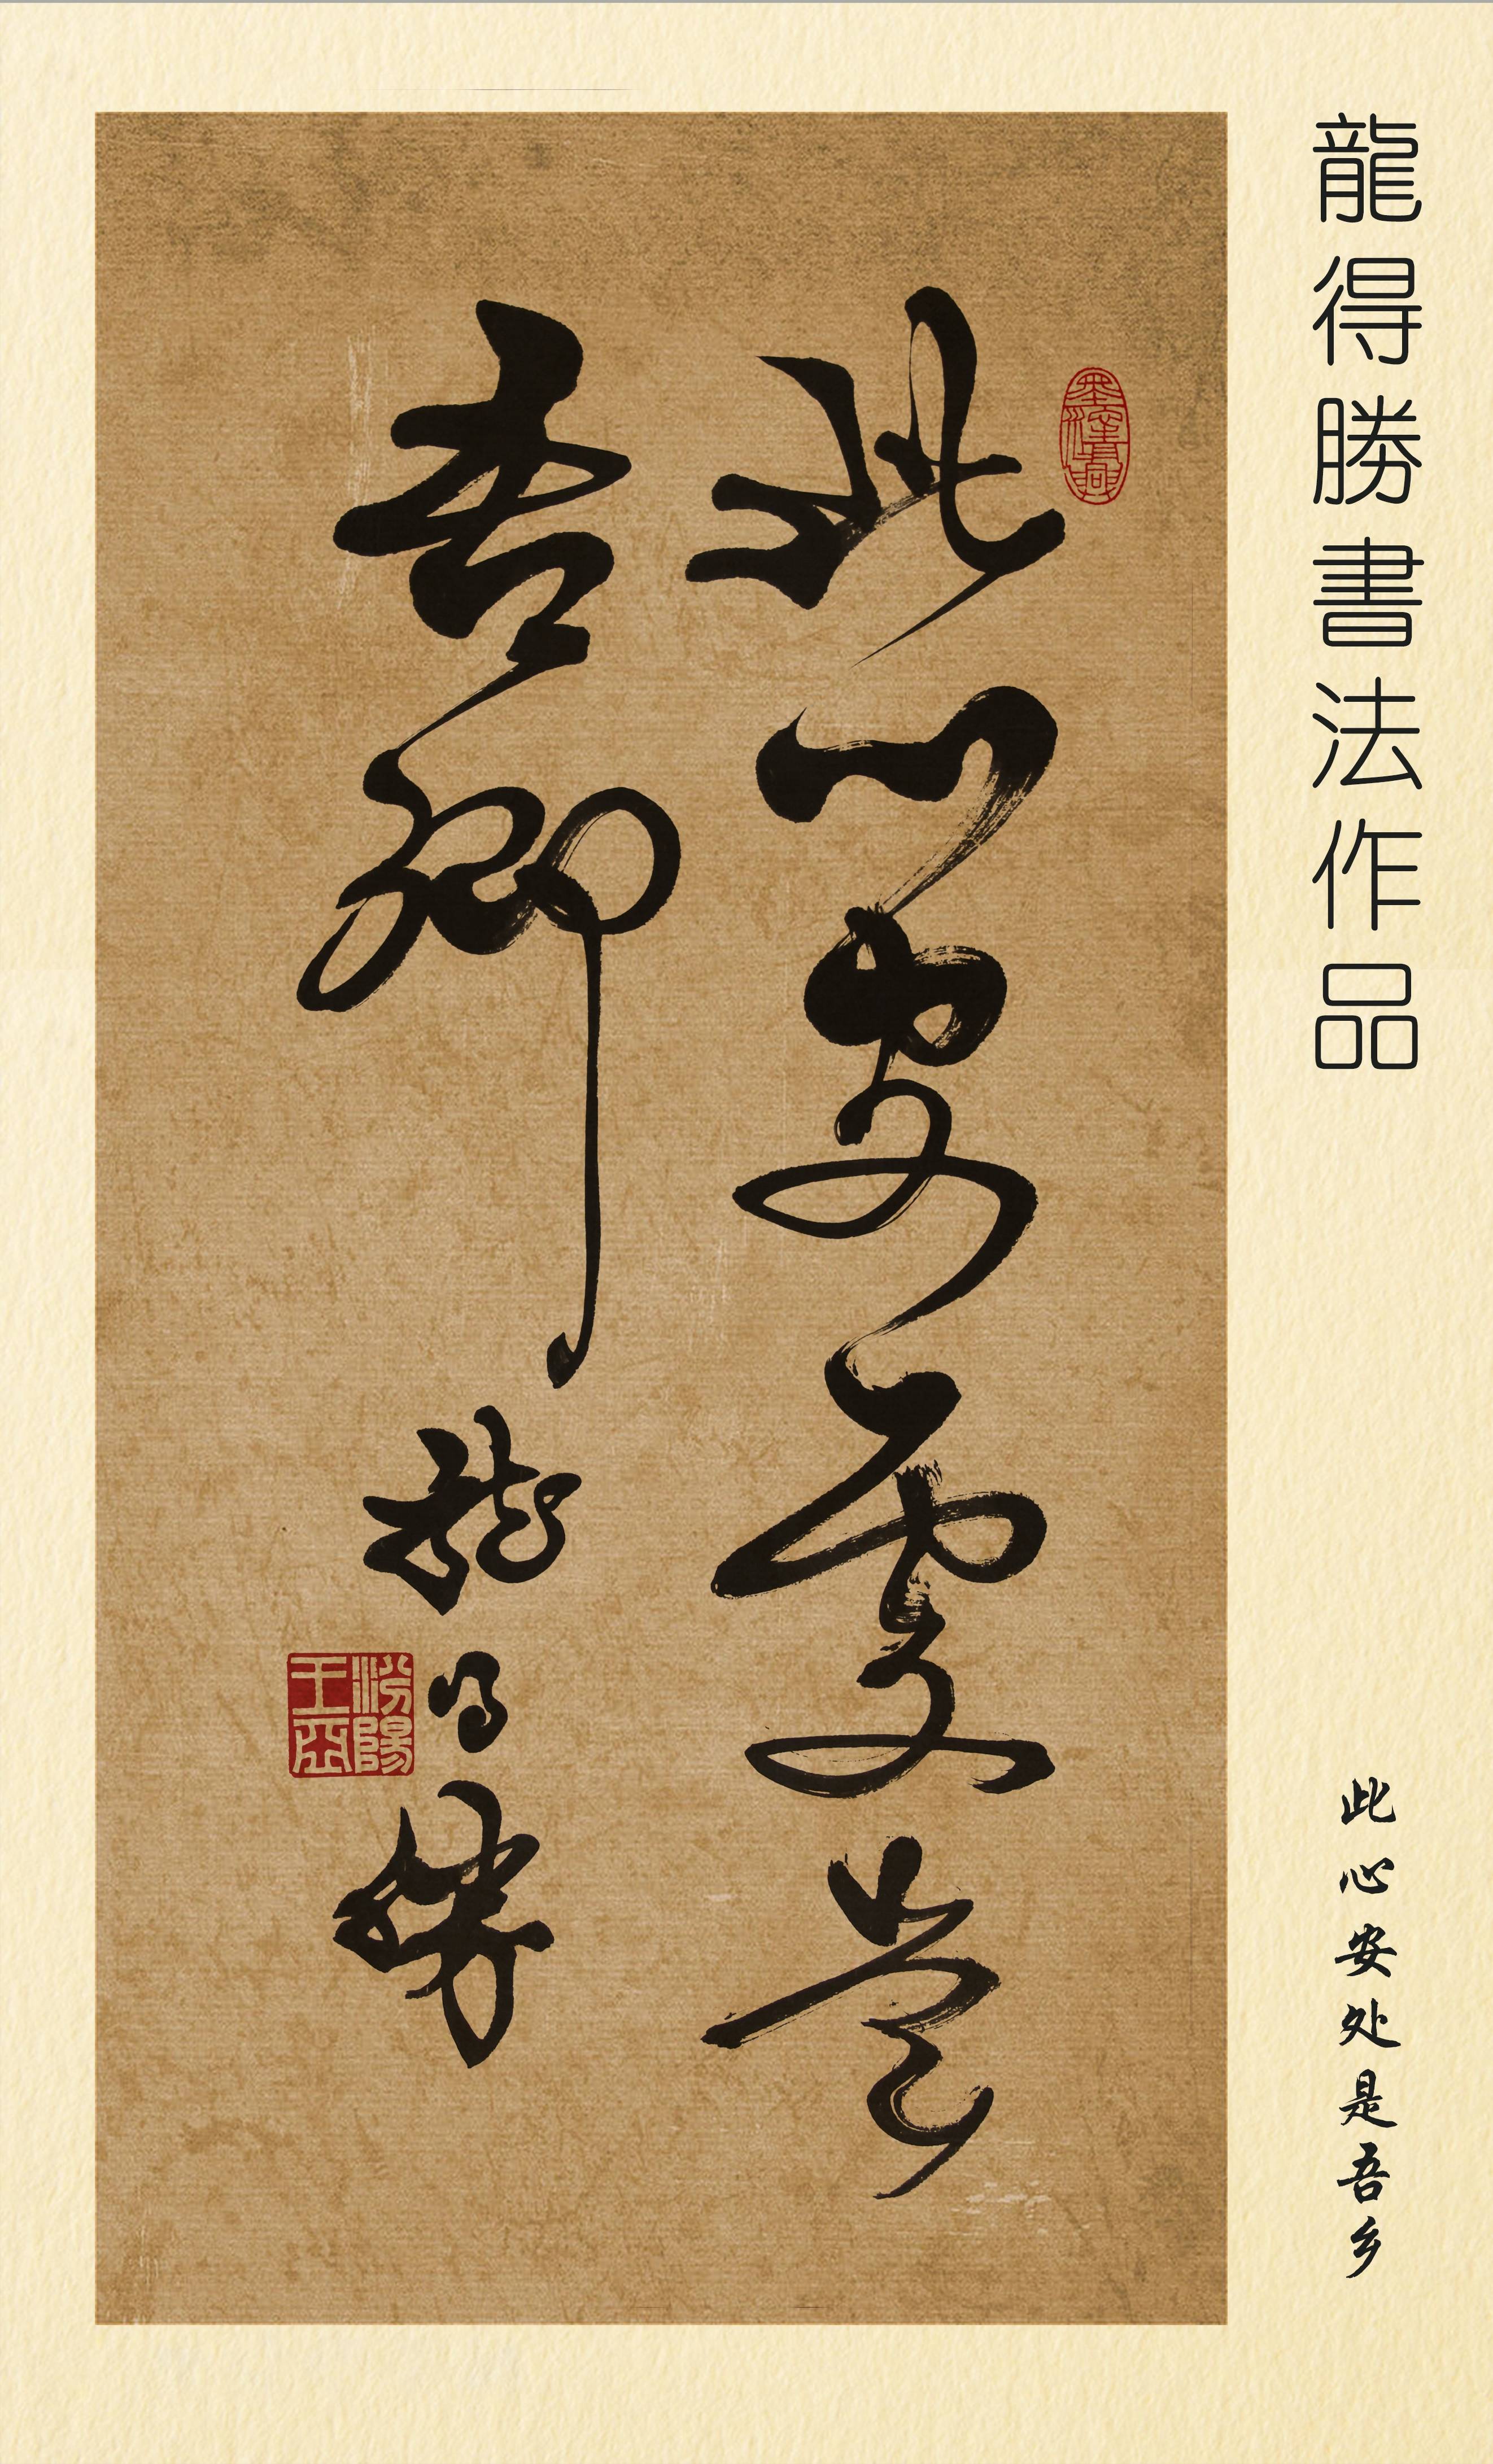 龍得勝書法作品
此心安处是吾乡
此心安處是
吾鄉
龍得勝